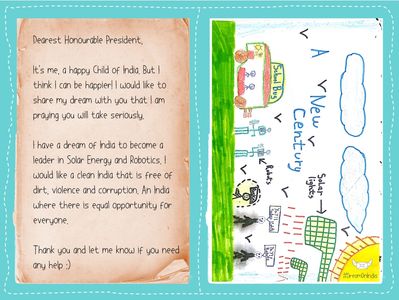 Dearest Honourable President,
It's me, a happy Child of India. But I
think I can be happier! I would like to
share my dream with you that I am
praying you will take seriously.
I have a dream of India to become a
leader in Solar Energy and Robotics. I
would like a clean India that is free of
dirt, violence and corruption. An India
where there is equal opportunity for
everyone.
Thank you and let me know if you need
any help :)
A
New
Century
School Bus
Solar
lights
Robots